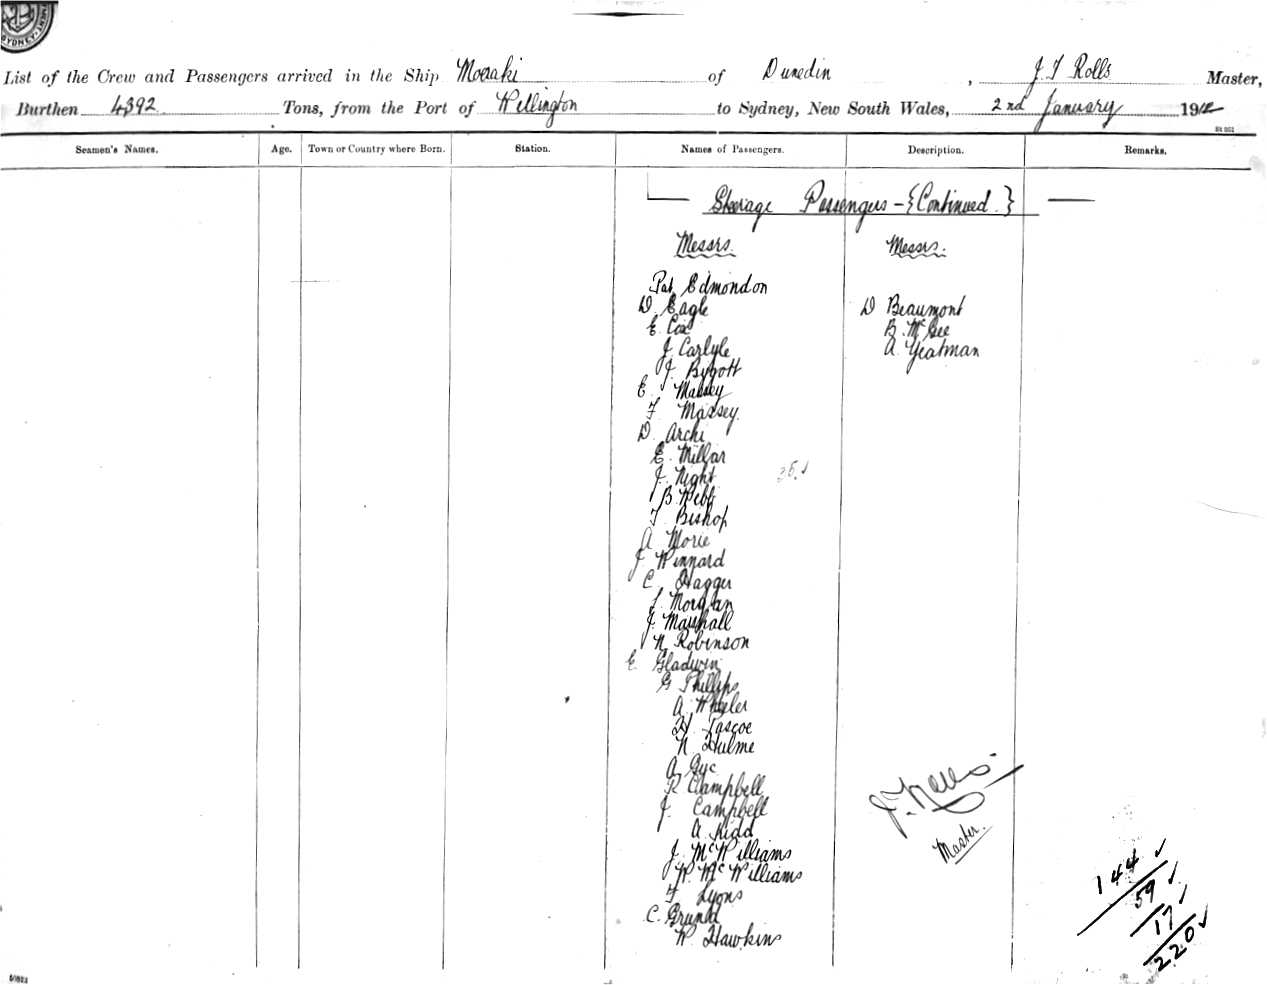 List of the Crew and Passengers arrived in the Ship Moeraki of Dunedin, J. F Rolls Master,
Burthen 4392 Tons, from the Port of Wellington to Sydney, New South Wales, 2nd January 19
Seamen's Names. Age. Town or Country where Born. Station. Names of Passengers. Description. Remarks.
Steerage Passengers - {Continued.}
Messrs. Messrs.
Pat Edmondon
D. Eagle D Beaumont
E. Cox B. McGee
J. Carlyle A. Yeatman
J. Bygott
E. Massey
F Massey.
D. Archi
E. Millar
J. Night 35
B Webb
T. Bishop
A Morie
J Winnard
C. Hagger
J. Morgan
J. Marshall
N. Robinson
E. Gladwin
G Phillips
A. Wheeler
H. Pascoe
N Hulme
A Gye
R Campbell
J. Campbell
A. Kidd
J. McWilliams
W. McWilliams
F Lyons
C. Grund
W. Hawkins
Master.
144
59
17
220
SYDNEY